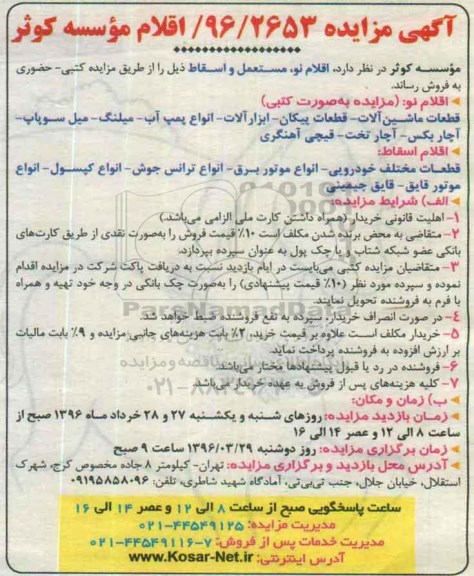 آگهی مزایده ۹۶/۲۶۵۳/ اقلام مؤسسه کوثر
مؤسسه کوثر در نظر دارد، اقلام نو، مستعمل و اسقاط ذیل را از طریق مزایده کتبی- حضوری
به فروش رساند.
اقلام نو: (مزایده به‌صورت کتبی)
قطعات ماشین‌آلات- قطعات پیکان- ابزارآلات- انواع پمپ آب- میلنگ- میل سوپاپ-
آچار بکس- آچار تخت- قیچی آهنگری
اقلام اسقاط:
قطعات مختلف خودرویی- انواع موتور برق- انواع ترانس جوش- انواع کپسول- انواع
موتور قایق- قایق جیمینی
الف) شرایط مزایده:
۱- اهلیت قانونی خریدار (همراه داشتن کارت ملی الزامی می‌باشد.)
۲- متقاضی به محض برنده شدن مکلف است ۱۰٪ قیمت فروش را به‌صورت نقدی از طریق کارت‌های
بانکی عضو شبکه شتاب و یا چک پول به عنوان سپرده بپردازد.
۳- متقاضیان مزایده کتبی می‌بایست در ایام بازدید نسبت به دریافت پاکت شرکت در مزایده اقدام
نموده و سپرده مورد نظر (۱۰٪ قیمت پیشنهادی) را به‌صورت چک بانکی در وجه خود تهیه و همراه
با فرم به فروشنده تحویل نمایند.
۴- در صورت انصراف خریدار، سپرده به نفع فروشنده ضبط خواهد شد.
۵- خریدار مکلف است علاوه بر قیمت خرید، ۲٪ بابت هزینه‌های جانبی مزایده و ۹٪ بابت مالیات
بر ارزش افزوده به فروشنده پرداخت نماید.
۶- فروشنده در رد یا قبول پیشنهادها مختار می‌باشد.
۷- کلیه هزینه‌های پس از فروش به عهده خریدار می‌باشد.
ب) زمان و مکان:
زمان بازدید مزایده: روزهای شنبه و یکشنبه ۲۷ و ۲۸ خرداد ماه ۱۳۹۶ صبح از
ساعت ۸ الی ۱۲ و عصر ۱۴ الی ۱۶
زمان برگزاری مزایده: روز دوشنبه ۱۳۹۶/۰۳/۲۹ ساعت ۹ صبح
آدرس محل بازدید و برگزاری مزایده: تهران- کیلومتر ۸ جاده مخصوص کرج، شهرک
استقلال، خیابان جلال، جنب تی‌بی‌تی، آمادگاه شهید شاطری، تلفن: ۰۹۱۹۵۸۵۸۰۹۶
ساعت پاسخگویی صبح از ساعت ۸ الی ۱۲ و عصر ۱۴ الی ۱۶
مدیریت مزایده: ۴۴۵۴۹۱۲۵-۰۲۱
مدیریت خدمات پس از فروش: ۷-۴۴۵۴۹۱۱۶-۰۲۱
آدرس اینترنتی: www.Kosar-Net.ir